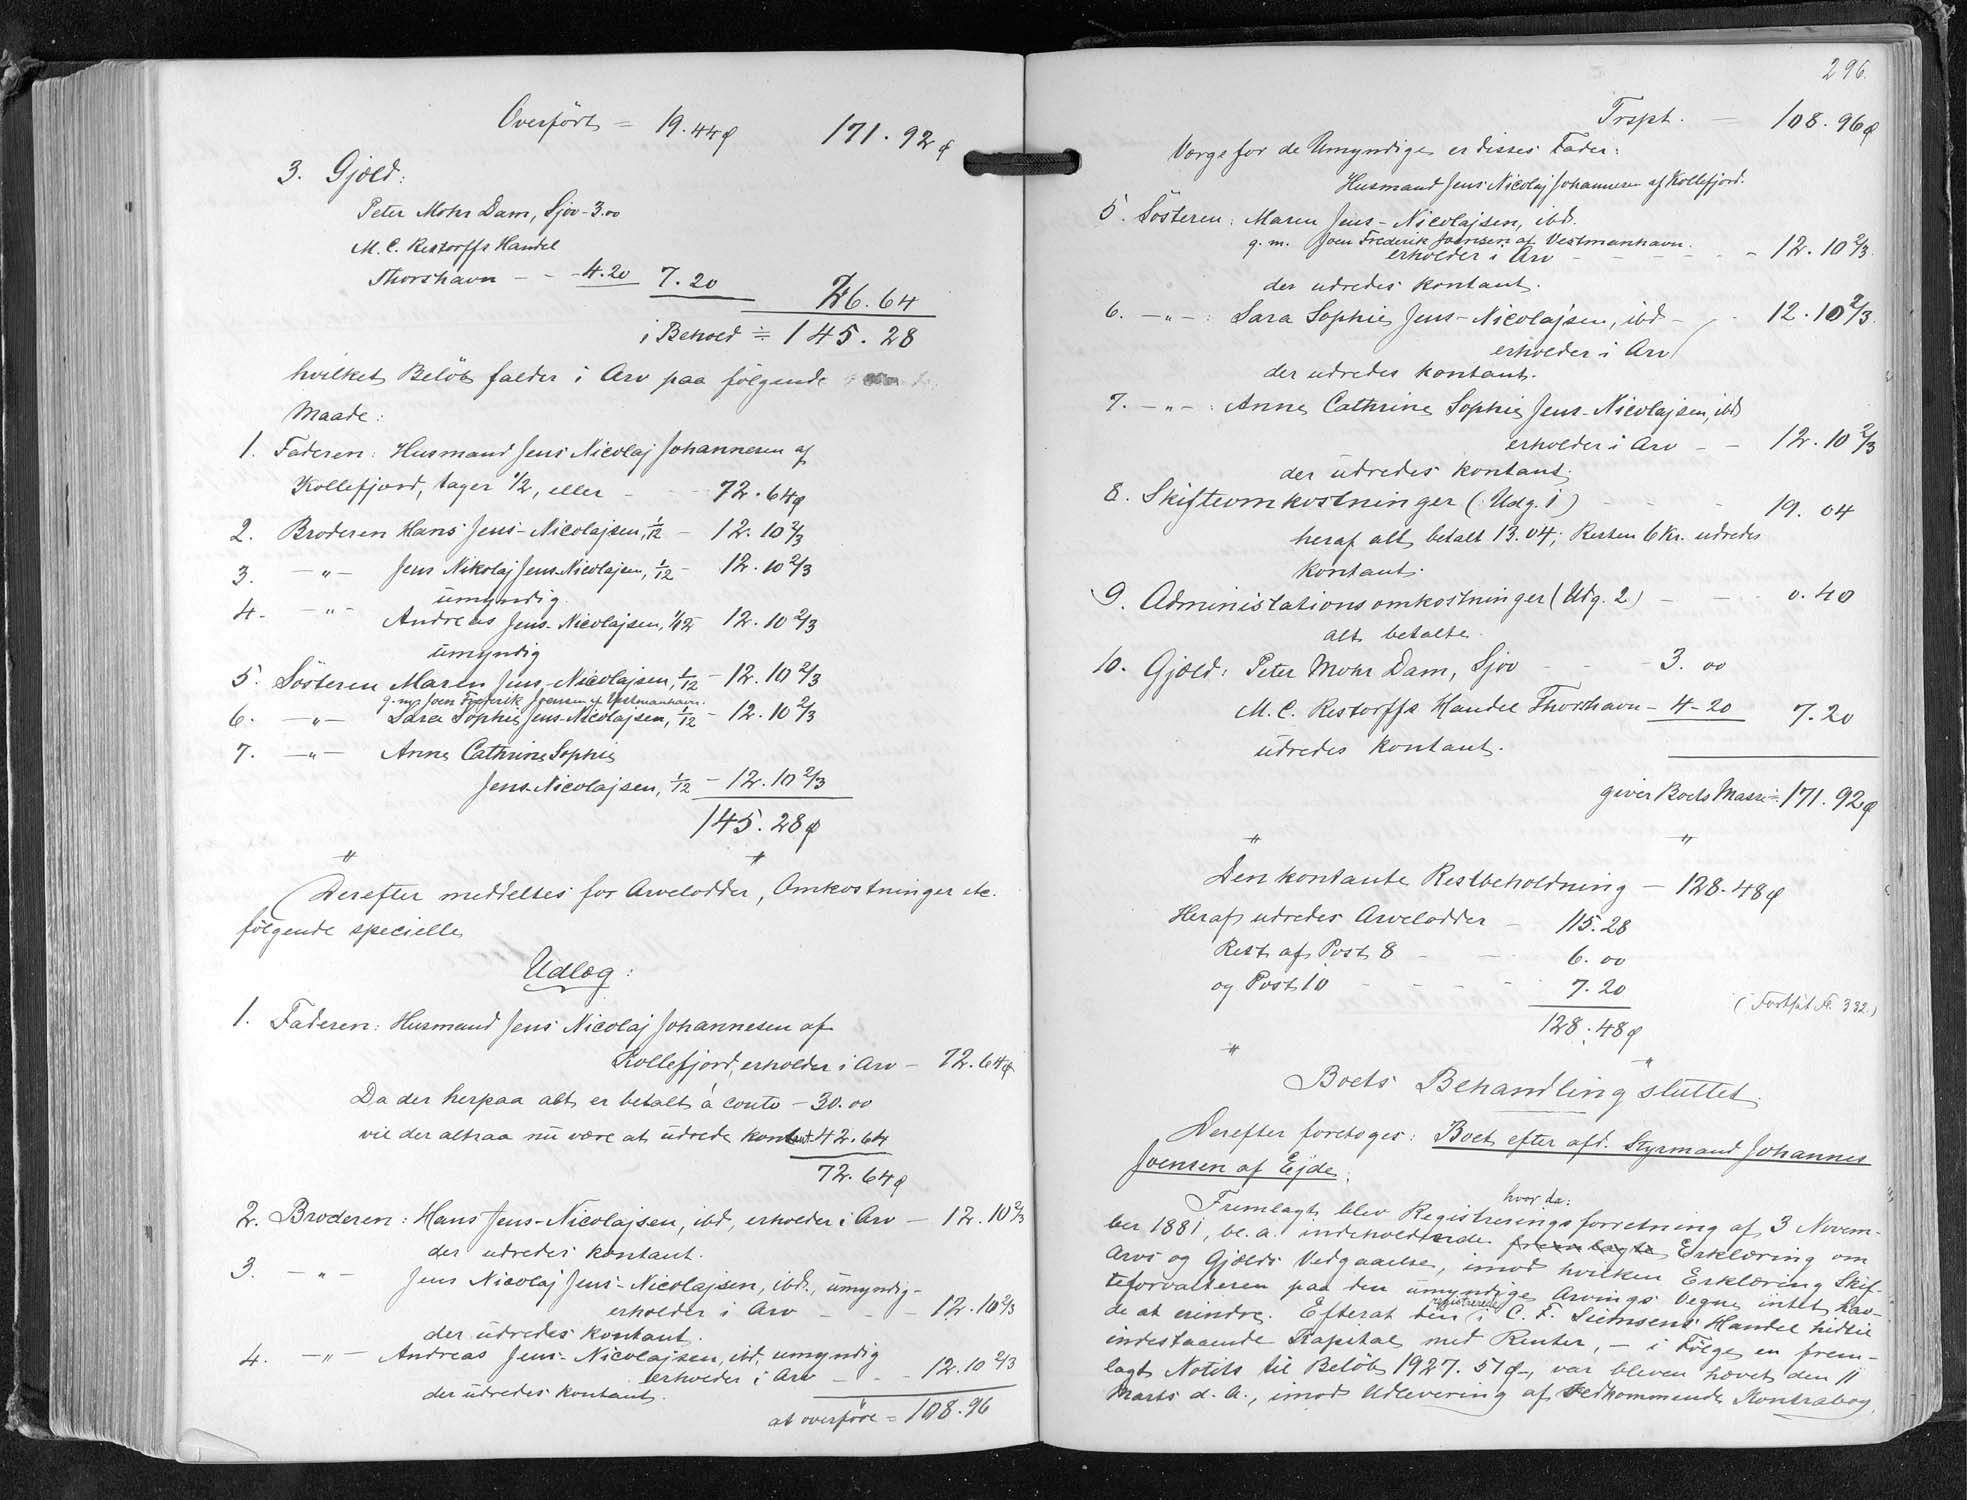 Overført = 19.44ø 171.92ø
3. Gjæld:
Peter Mohr Dam, Sjov - 3.00
M. C. Restorffs Handel
Thorshavn - - 4.20 7.20 26.64
i Behold = 145.28
hvilket Beløb falder i Arv paa følgende
Maade:
1. Faderen: Husmand Jens Nicolaj Johannesen af
Kollefjord, tager 1/2, eller - 72.64ø
2. Broderen Hans Jens-Nicolajsen, 1/12 - 12.10 2/3
3. -"- Jens Nikolaj Jens-Nicolajsen, 1/12 - 12.10 2/3
umyndig
4. -"- Andreas Jens-Nicolajsen, 1/12 12.10 2/3
umyndig
5. Søsteren Maren Jens-Nicolajsen, 1/12 - 12.10 2/3
g. m. Joen Frederik Joensen af Vestmanhavn.
6. -"- Sara Sophie Jens-Nicolajsen, 1/12 - 12.10 2/3
7. -"- Anne Cathrine Sophie
Jens-Nicolajsen, 1/12 - 12.10 2/3
145.28ø
" "
Derefter meddeltes for Arvelodder, Omkostninger etc.
følgende specielle
Udlæg:
1. Faderen: Husmand Jens Nicolaj Johannesen af
Kollefjord, erholder i Arv - 72.64ø
Da der herpaa alt er betalt á conto - 30.00
vil der altsaa nu være at udrede kontant 42.64
72.64ø
2. Broderen: Hans Jens-Nicolajsen, ibd, erholder i Arv - 12.10 2/3
der udredes kontant.
3. -"- Jens Nicolaj Jens-Nicolajsen, ibd., umyndig-
erholder i Arv - - - 12.10 2/3
der udredes kontant.
4. -"- Andreas Jens-Nicolajsen, ibd, umyndig
erholder i Arv - - - 12.10 2/3
der udredes kontant.
at overføre = 108.96
296.
Trspt. - 108.96ø
Værge for de Umyndige er disses Fader:
Husmand Jens Nicolaj Johannesen af Kollefjord.
5. Søsteren: Maren Jens-Nicolajsen, ibd.
g. m. Joen Frederik Joensen af Vestmanhavn.
erholder i Arv - - - - - 12.10 2/3
der udredes kontant.
6. -"-: Sara Sophie Jens-Nicolajsen, ibd - - 12.10 2/3
erholder i Arv
der udredes kontant.
7. -"-: Anne Cathrine Sophie Jens-Nicolajsen, ibd
erholder i Arv - - 12.10 2/3
der udredes kontant.
8. Skifteomkostninger (Udg. 1) - - - 19.04
heraf alt betalt 13.04; Resten 6 Kr. udredes
kontant.
9. Administationsomkostninger (Udg. 2) - - - 0.40
alt betalte.
10. Gjæld: Peter Mohr Dam, Sjov - - - 3.00
M. C. Restorffs Handel Thorshavn - 4-20 7.20
udredes kontant.
giver Boets Masse = 171.92ø
" "
Den kontante Restbeholdning - 128.48ø
Heraf udredes Arvelodder - 115.28
Rest af Post 8 - - 6.00
og Post 10 - - - - - 7.20
(Fortsat Fl. 332.)
128.48ø
" "
Boets Behandling sluttet.
Derefter foretoges: Boet efter afd. Styrmand Johannes
Joensen af Ejde.
hvor da:
Fremlagt blev Registreringsforretning af 3 Novem-
ber 1881, bl. a. indeholdende fremlagte Erklæring om
Arvs og Gjælds Vedgaaelse, imod hvilken Erklæring Skif-
teforvalteren paa den umyndige Arvings Vegne intet hav-
de at erindre. Efterat den registrerede i C. F. Siemsens Handel hidtil
indestaaende Kapital med Renter, - i Følge en frem-
lagt Notits til Beløb 1927.51ø, var bleven hævet den 11
Marts d. A., imod Udlevering af vedkommende Kontrabog,